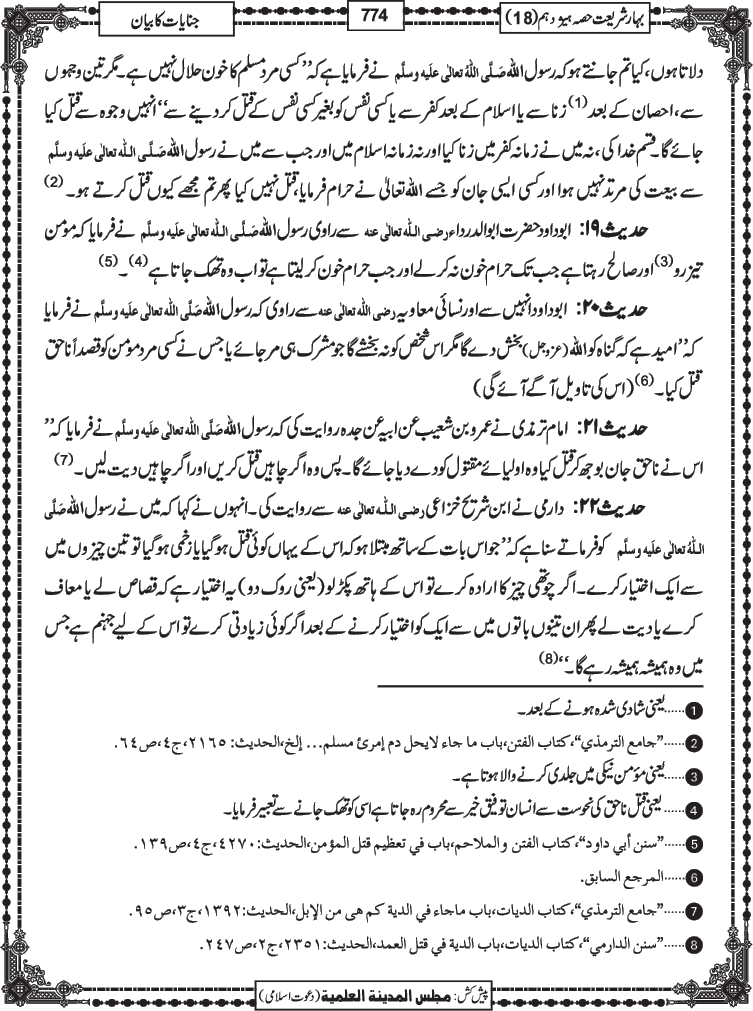 بہار شریعت حصہ ہیژدہم (18)
774
جنایات کا بیان
دلاتا ہوں، کیا تم جانتے ہو کہ رسول اللہ صَلَّی اللہُ تعالٰی علیہ وسلَّم نے فرمایا ہے کہ ’’کسی مرد مسلم کا خون حلال نہیں ہے۔ مگر تین وجہوں
سے، احصان کے بعد(1) زنا سے یا اسلام کے بعد کفر سے یا کسی نفس کو بغیر کسی نفس کے قتل کر دینے سے‘‘ انہیں وجوہ سے قتل کیا
جائے گا۔ قسم خدا کی، نہ میں نے زمانہ کفر میں زنا کیا اور نہ زمانہ اسلام میں اور جب سے میں نے رسول اللہ صَلَّی اللہ تعالٰی علیہ وسلَّم
سے بیعت کی مرتد نہیں ہوا اور کسی ایسی جان کو جسے اللہ تعالٰی نے حرام فرمایا، قتل نہیں کیا پھر تم مجھے کیوں قتل کرتے ہو۔(2)
حدیث ۱۹: ابو داود حضرت ابو الدرداء رضی اللہ تعالٰی عنہ سے راوی رسول اللہ صَلَّی اللہ تعالٰی علیہ وسلَّم نے فرمایا کہ مؤمن
تیز رو(3) اور صالح رہتا ہے جب تک حرام خون نہ کرلے اور جب حرام خون کر لیتا ہے تو اب وہ تھک جاتا ہے(4)۔(5)
حدیث ۲۰: ابو داود انہیں سے اور نسائی معاویہ رضی اللہ تعالٰی عنہ سے راوی کہ رسول اللہ صَلَّی اللہ تعالٰی علیہ وسلَّم نے فرمایا
کہ ’’امید ہے کہ گناہ کو اللہ (عزوجل) بخش دے گا مگر اس شخص کو نہ بخشے گا جو مشرک ہی مر جائے یا جس نے کسی مرد مومن کو قصداً ناحق
قتل کیا۔(6) (اس کی تاویل آگے آئے گی)
حدیث ۲۱: امام ترمذی نے عمرو بن شعیب عن ابیہ عن جدہ روایت کی کہ رسول اللہ صَلَّی اللہ تعالٰی علیہ وسلَّم نے فرمایا کہ ’’
اس نے ناحق جان بوجھ کر قتل کیا وہ اولیائے مقتول کو دے دیا جائے گا۔ پس وہ اگر چاہیں قتل کریں اور اگر چاہیں دیت لیں۔(7)
حدیث ۲۲: دارمی نے ابن شریح خزاعی رضی اللہ تعالٰی عنہ سے روایت کی۔ انہوں نے کہا کہ میں نے رسول اللہ صَلَّی
اللہُ تعالٰی علیہ وسلَّم کو فرماتے سنا ہے کہ ’’جو اس بات کے ساتھ مبتلا ہو کہ اس کے یہاں کوئی قتل ہو گیا یا زخمی ہو گیا تو تین چیزوں میں
سے ایک اختیار کرے۔ اگر چوتھی چیز کا ارادہ کرے تو اس کے ہاتھ پکڑ لو (یعنی روک دو) یہ اختیار ہے کہ قصاص لے یا معاف
کرے یا دیت لے پھر ان تینوں باتوں میں سے ایک کو اختیار کرنے کے بعد اگر کوئی زیادتی کرے تو اس کے لیے جہنم ہے جس
میں وہ ہمیشہ ہمیشہ رہے گا۔‘‘(8)
1......یعنی شادی شدہ ہونے کے بعد۔
2......”جامع الترمذي“، کتاب الفتن، باب ما جاء لايحل دم إمرئ مسلم... إلخ، الحدیث: ۲۱۶۵، ج۴، ص۶۴.
3......یعنی مؤمن نیکی میں جلدی کرنے والا ہوتا ہے۔
4......یعنی قتل ناحق کی نحوست سے انسان توفیق خیر سے محروم رہ جاتا ہے اسی کو تھک جانے سے تعبیر فرمایا۔
5......”سنن أبي داود“، کتاب الفتن والملاحم، باب في تعظيم قتل المؤمن، الحدیث: ۴۲۷۰، ج۴، ص۱۳۹.
6......المرجع السابق.
7......”جامع الترمذي“، کتاب الديات، باب ماجاء في الدية كم هى من الإبل، الحدیث: ۱۳۹۲، ج۳، ص۹۵.
8......”سنن الدارمي“، کتاب الديات، باب الدية في قتل العمد، الحدیث: ۲۳۵۱، ج۲، ص۲۴۷.
پیش کش: مجلس المدینۃ العلمیۃ (دعوت اسلامی)